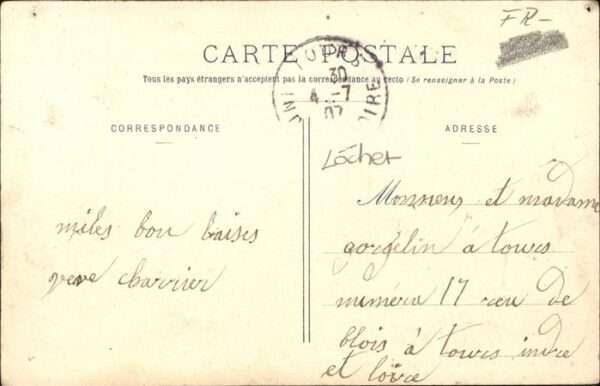 FR-
CARTE POSTALE
Tous les pays étrangers n'acceptent pas la correspondance au recto (Se renseigner à la Poste)
TOURS
30
4 -7
07
INDRE
CORRESPONDANCE
ADRESSE
Lôches
miles bon baises
veve charrier
Monsieur et madame
gorgelin à tours
numéro 17 rœu de
blois à tours indre
et loire